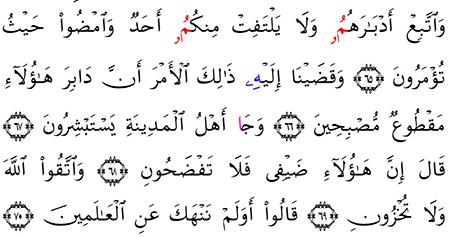 وَٱتَّبِعْ أَدْبَـٰرَهُمُۥ وَلَا يَلْتَفِتْ مِنكُمُۥ أَحَدٌ وَٱمْضُوا۟ حَيْثُ
تُؤْمَرُونَ ﴿٦٥﴾ وَقَضَيْنَا إِلَيْهِۦ ذَٰلِكَ ٱلْأَمْرَ أَنَّ دَابِرَ هَـٰؤُلَآءِ
مَقْطُوعٌ مُّصْبِحِينَ ﴿٦٦﴾ وَجَا أَهْلُ ٱلْمَدِينَةِ يَسْتَبْشِرُونَ ﴿٦٧﴾
قَالَ إِنَّ هَـٰؤُلَآءِ ضَيْفِى فَلَا تَفْضَحُونِ ﴿٦٨﴾ وَٱتَّقُوا۟ ٱللَّهَ
وَلَا تُخْزُونِ ﴿٦٩﴾ قَالُوا۟ أَوَلَمْ نَنْهَكَ عَنِ ٱلْعَـٰلَمِينَ ﴿٧٠﴾